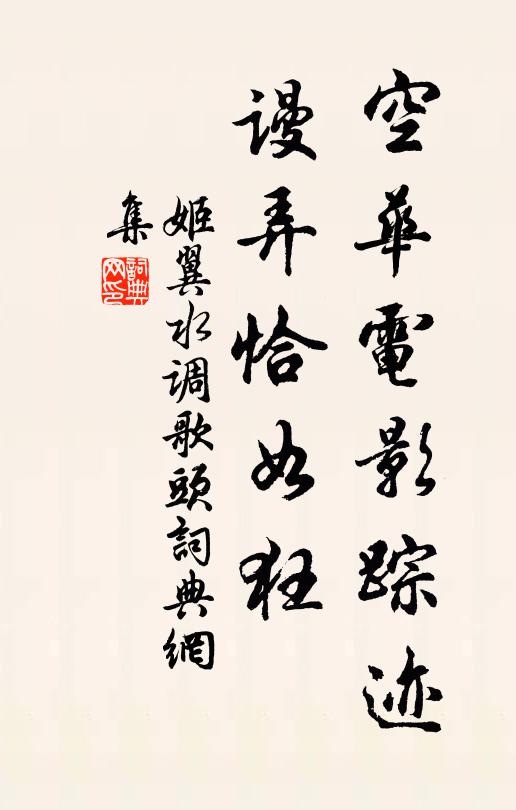 空華電影踪迹
謾弄恰如狂
姬翼水调歌頭詞典網
集
詞典
网印